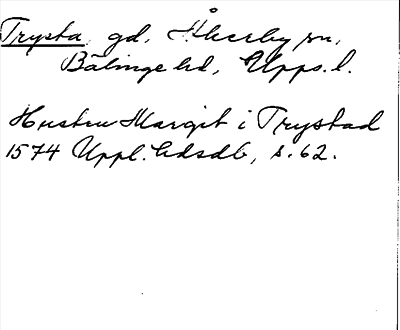 Trysta, gd, Åkerby sn,
Bälinge hd, Upps. l.
Hustru Margit i Trystad
1574 Uppl. hdsdb, s. 62.